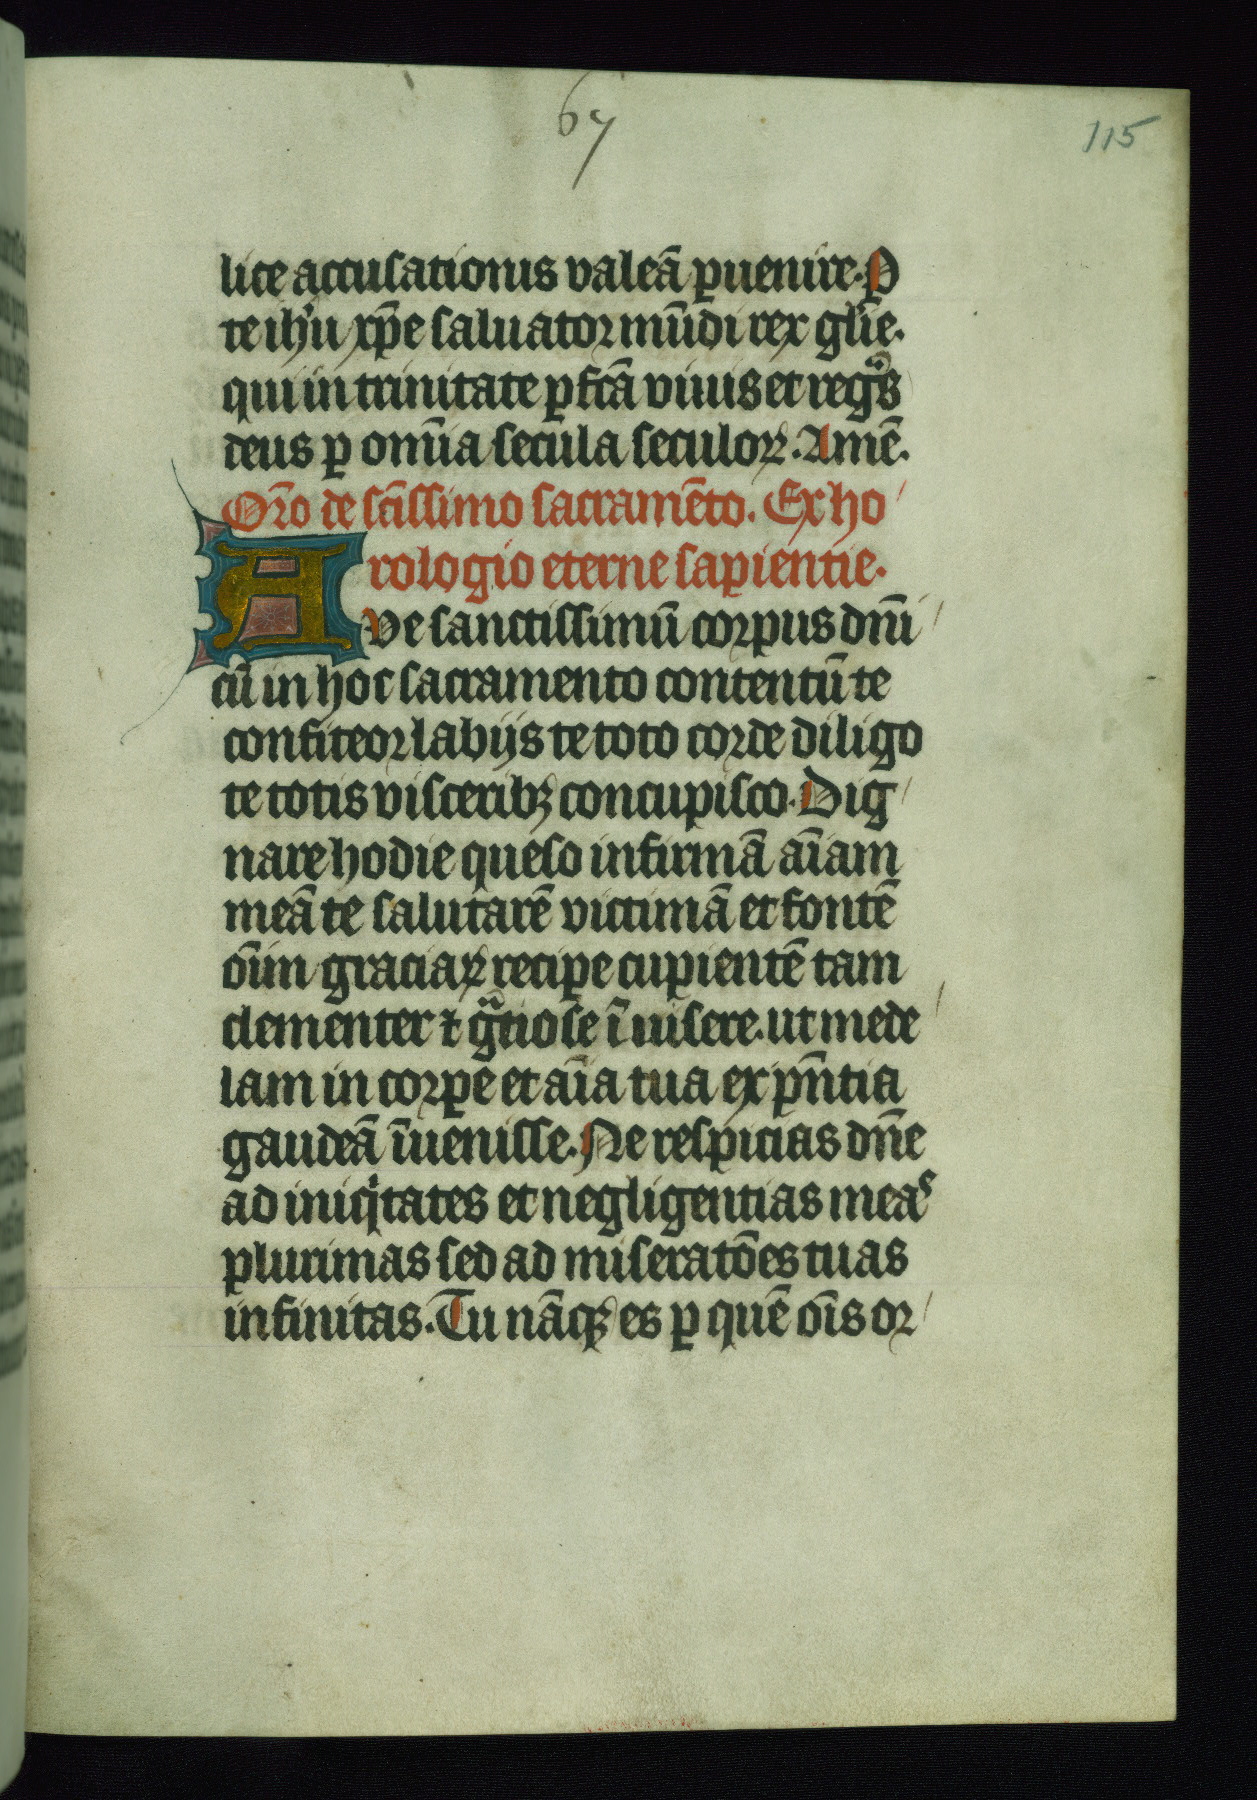 67
115
lice accusationis valeā ꝑuenire. P
te ihū xp̄e saluator mūdi rex gl̄ie.
qui in trinitate ꝑfc̄a viuis et regͣs
deus ꝑ om̄ia secula seculoꝝ. Amē.
Or̄o de sc̄issimo sacramēto. Ex ho
rologio eterne sapientie.
Aue sanctissimū corpus dn̄i
cū in hoc sacramento contentū te
confiteor labijs te toto corde diligo
te totis visceribꝫ concupisco. Dig
nare hodie queso infirmā aīam
meā te salutarē victimā et fontē
oīm graciaꝝ recipe cupientē tam
clementer ⁊ gͣtiose īuisere. ut mede
lam in corpe et aīa tua ex pn̄tia
gaudeā īuenisse. Ne respicias dn̄e
ad iniqͥtates et negligentias meas
plurimas sed ad miseratōes tuas
infinitas. Tu nāqꝫ es ꝑ quē oīs or